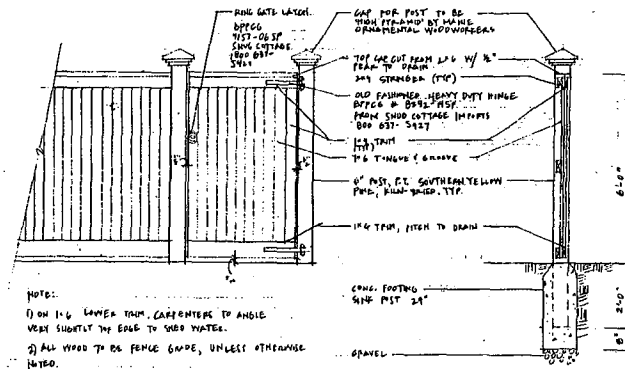 RING GATE LATCH.
BPPCG
9157-06SP
SNUG COTTAGE
800 637-
5427
CAP FOR POST TO BE
"HIGH PYRAMID" BY MAINE
ORNAMENTAL WOODWORKERS
TOP CAP CUT FROM W/ ½"
PEAK TO DRAIN
2x4 STRINGER (TYP)
OLD FASHIONED HEAVY DUTY HINGE
BPPCG # 8292-
FROM SNUG COTTAGE IMPORTS
800 637-5427
TRIM
(TYP)
1x6 TONGUE & GROOVE
6" POST, P.T. SOUTHERN YELLOW
PINE, KILN-DRIED. TYP.
1x6 TRIM, PITCH TO DRAIN
CONC. FOOTING
SINK POST 24"
GRAVEL
6'-0"
2'-0"
8"
NOTE:
1) ON 1x6 LOWER TRIM. CARPENTERS TO ANGLE
VERY SLIGHTLY TOP EDGE TO SHED WATER.
2) ALL WOOD TO BE FENCE GRADE, UNLESS OTHERWISE
NOTED.